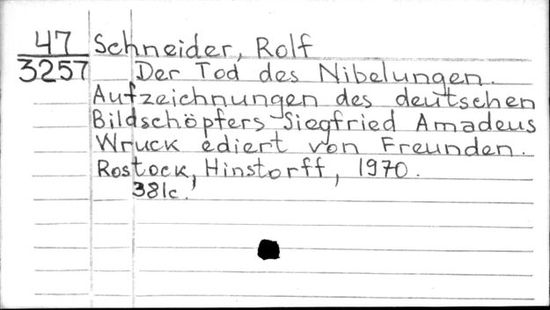 47 Schneider, Rolf
3257 Der Tod des Nibelungen.
Aufzeichnungen des deutschen
Bildschöpfers Siegfried Amadeus
Wruck ediert von Freunden.
Rostock, Hinstorff, 1970.
381c.